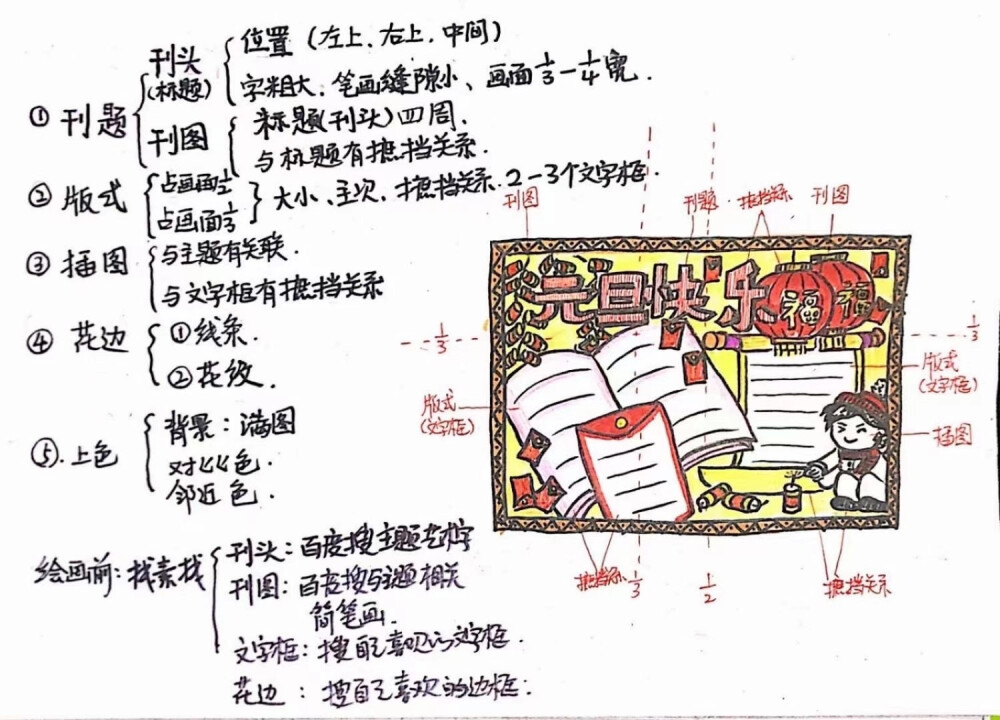 ① 刊题
刊头
(标题)
位置 (左上、右上、中间)
字粗大、笔画缝隙小、画面1/3-1/4宽.
刊图
标题(刊头)四周.
与标题有摭挡关系.
② 版式
占画面1/2
占画面1/3
大小、主次、摭挡关系. 2-3个文字框.
③ 插图
与主题有关联.
与文字框有摭挡关系
④ 花边
①线条.
②花纹.
⑤. 上色
背景: 满图
对比色.
邻近色.
绘画前: 找素材
刊头: 百度搜主题艺术字
刊图: 百度搜与主题相关
简笔画.
文字框: 搜自己喜欢的文字框.
花边: 搜自己喜欢的边框.
刊图
刊题
摭挡关系
刊图
元旦快乐
福
福
1/3
1/3
版式
(文字框)
版式
(文字框)
插图
摭挡关系
1/3
1/2
摭挡关系